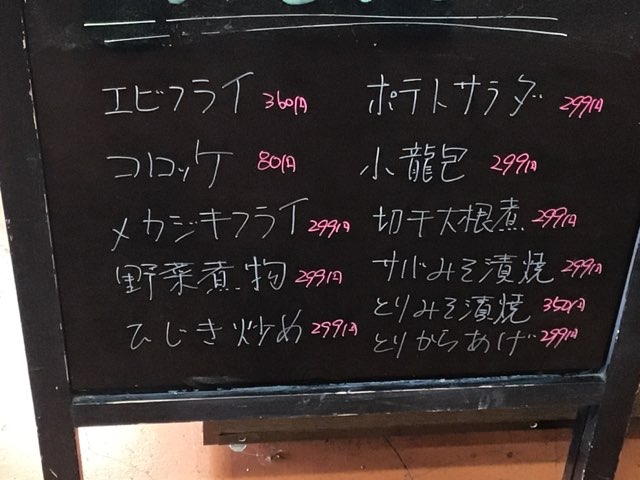 エビフライ 360円
コロッケ 80円
メカジキフライ 299円
野菜煮物 299円
ひじき炒め 299円
ポテトサラダ 299円
小龍包 299円
切干大根煮 299円
サバみそ漬焼 299円
とりみそ漬焼 350円
とりからあげ 299円